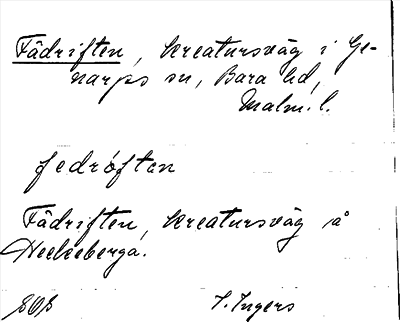 Fädriften, kreatursväg i Ge-
narps sn, Bara hd,
Malm. l.
fedröften
Fädriften, kreatursväg på
Heckeberga.
I. Ingers